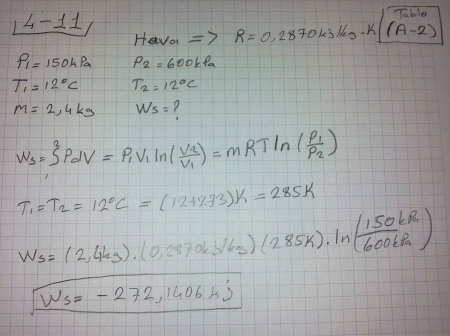 4-11
Hava => R=0,2870kj/kg.K
Tablo
(A-2)
P1=150kPa P2=600kPa
T1=12°C T2=12°C
m=2,4kg Ws=?
Ws=₁∫²PdV=P1V1ln(V2/V1)=mRTln(P1/P2)
T1=T2=12°C=(12+273)K=285K
Ws=(2,4kg).(0,2870kj/kg)(285K).ln(150kPa/600kPa)
Ws=-272,1406kj